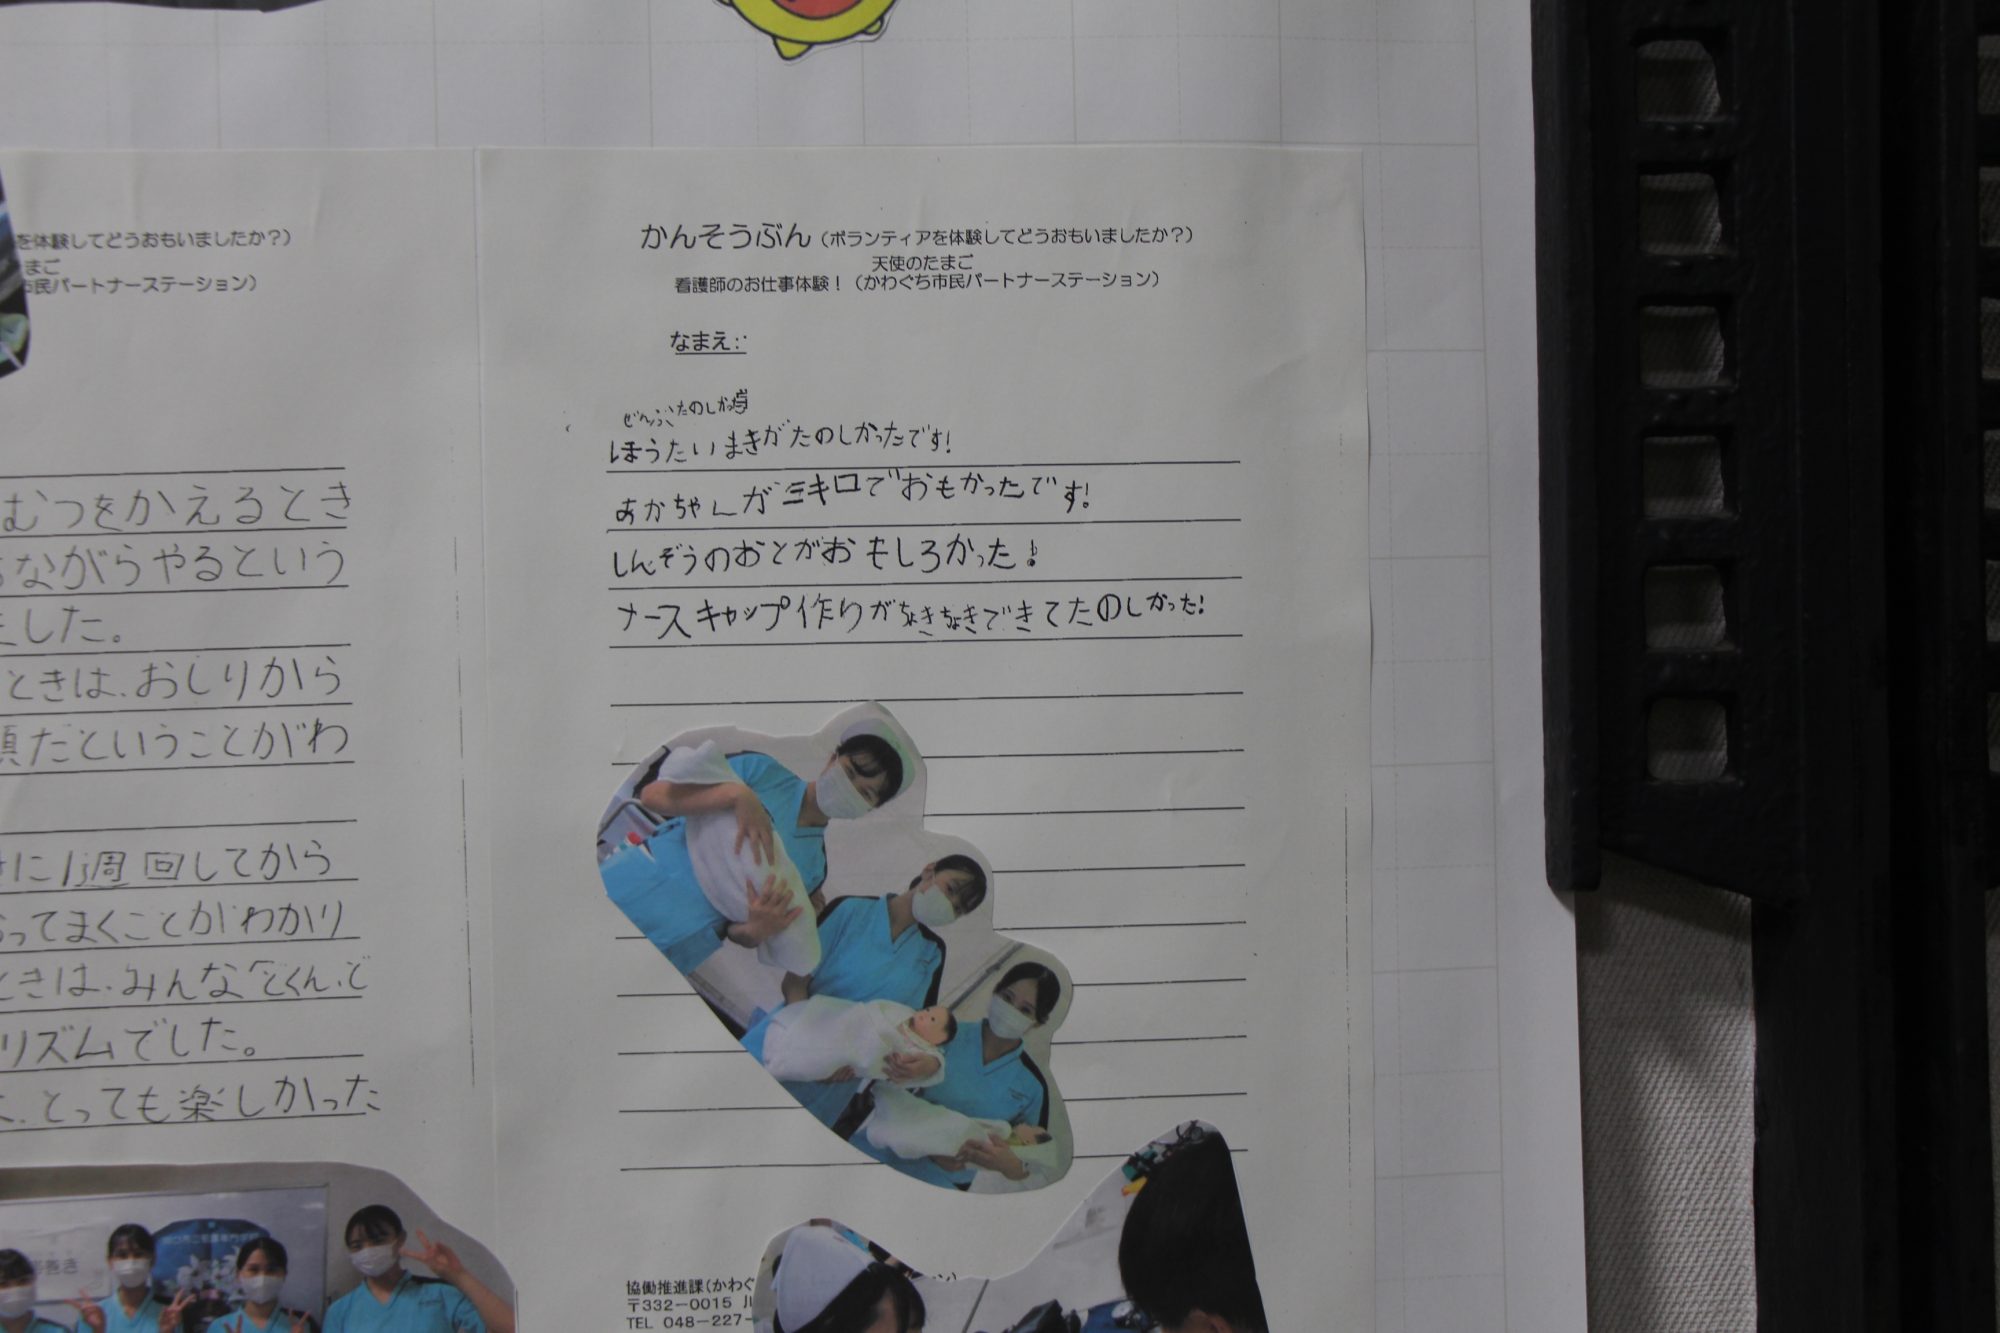 を体験してどうおもいましたか？）
まご
市民パートナーステーション）
むつをかえるとき
ながらやるという
ました。
ときは、おしりから
だということがわ
に 周回してから
ってまくことがわかり
ときは、みんな
リズムでした。
とっても楽しかった
かんそうぶん（ボランティアを体験してどうおもいましたか？）
天使のたまご
看護師のお仕事体験！（かわぐち市民パートナーステーション）
なまえ：
ぜんぶたのしかった
ほうたいまきがたのしかったです！
あかちゃんが三キロでおもかったです！
しんぞうのおとがおもしろかった！
ナースキャップ作りがちょきちょきできてたのしかった！
協働推進課（かわぐ
〒332－0015 川
TEL 048－227－